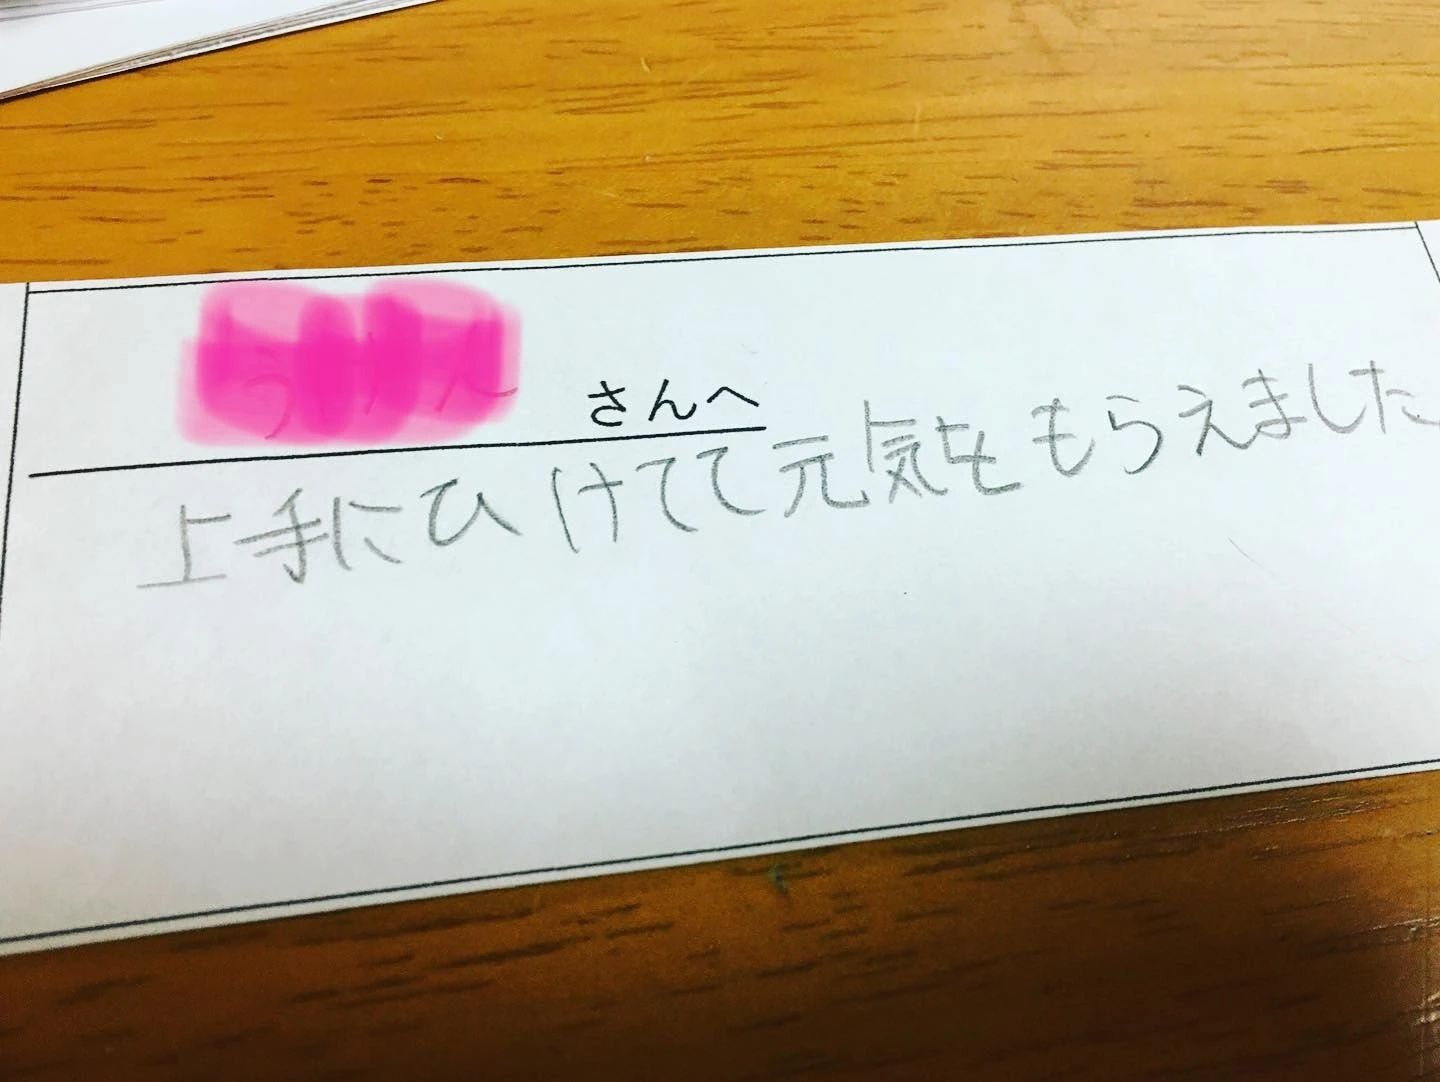 さんへ
上手にひけてて元気をもらえました